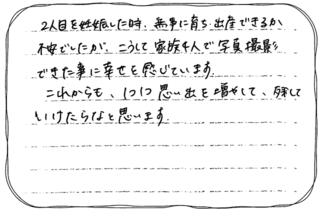 2人目を妊娠した時、無事に育ち、出産できるか
不安でしたが、こうして家族4人で写真撮影
できた事に幸せを感じています。
これからも、1つ1つ思い出を増やして、残して
いけたらなと思います。